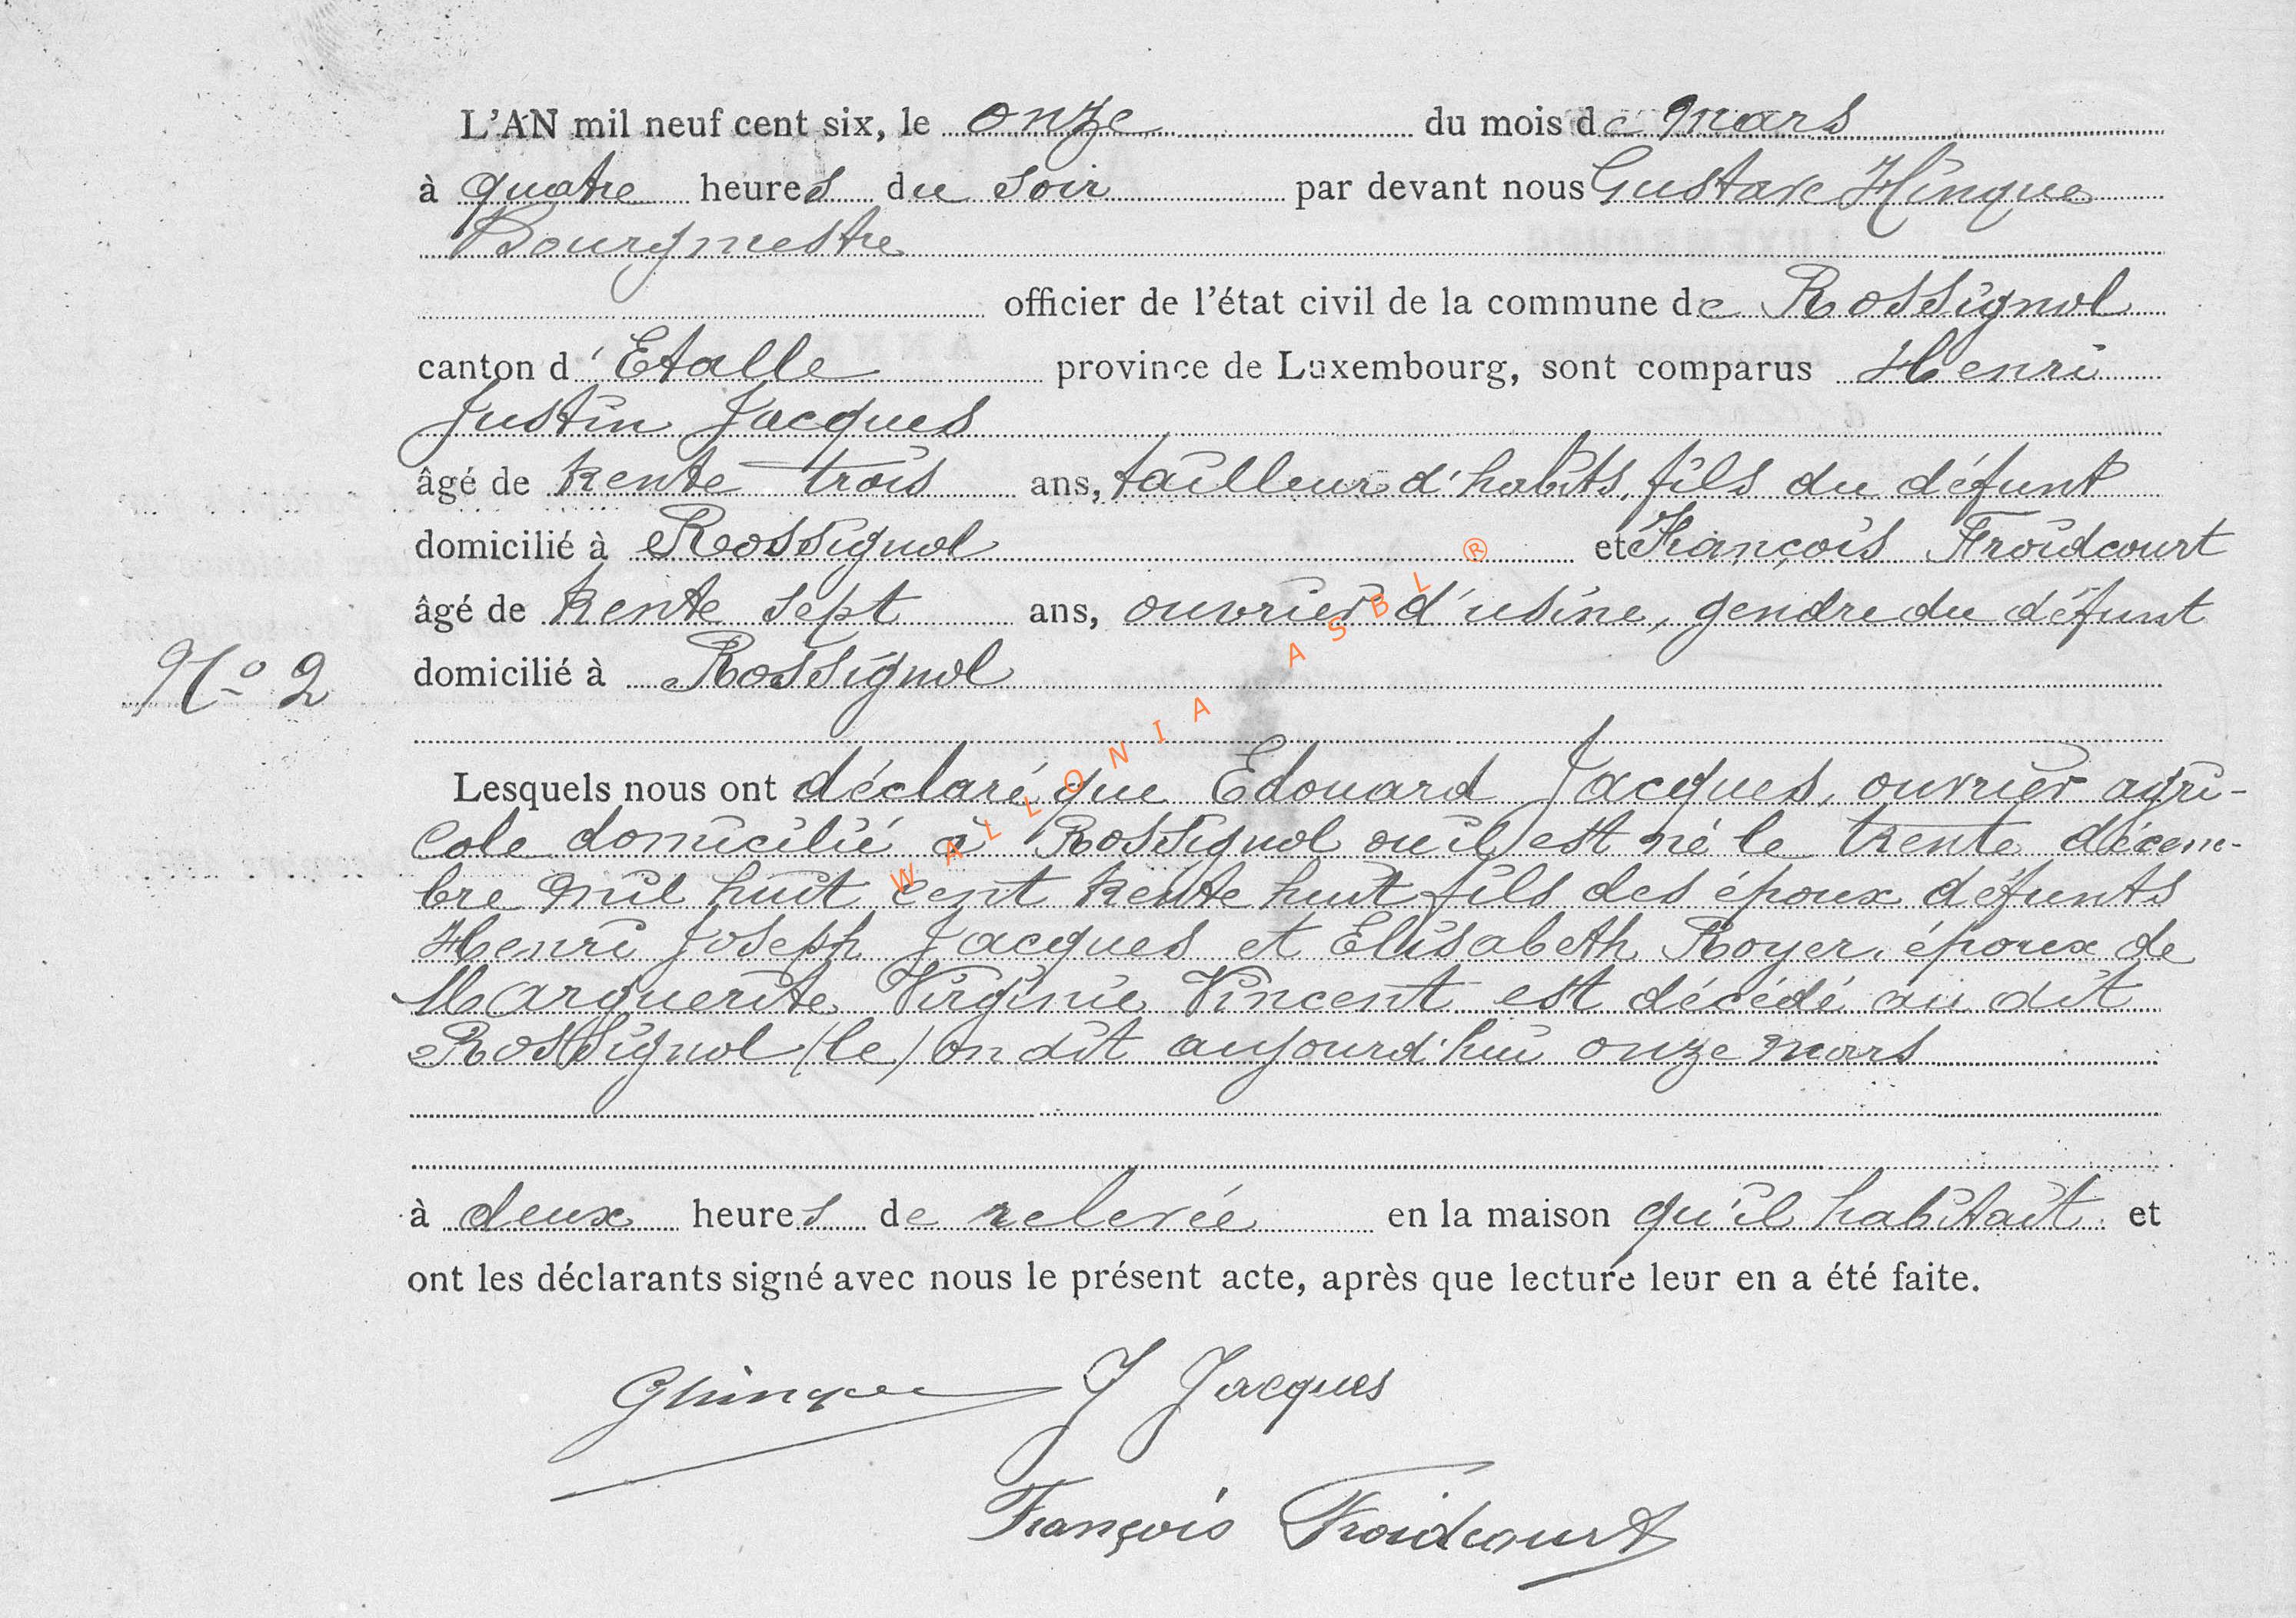 L'AN mil neuf cent six, le onze du mois de mars
à quatre heures du soir par devant nous Gustave Hinque
Bourgmestre
officier de l'état civil de la commune de Rossignol
canton d'Etalle province de Luxembourg, sont comparus Henri
Justin Jacques
âgé de trente trois ans, tailleur d'habits, fils du défunt
domicilié à Rossignol et François Froidcourt
âgé de trente sept ans, ouvrier d'usine, gendre du défunt
N° 2 domicilié à Rossignol
Lesquels nous ont déclaré que Edouard Jacques, ouvrier agri-
cole domicilié à Rossignol ou il est né le trente décem-
bre mil huit cent trente huit fils des époux défunts
Henri Joseph Jacques et Elisabeth Royer, époux de
Marguerite Virginie Vincent est décédé au dit
Rossignol (le) on dit aujourd'hui onze mars
à deux heures de relevée en la maison qu'il habitait et
ont les déclarants signé avec nous le présent acte, après que lecture leur en a été faite.
GHinque J Jacques
François Froidcourt
WALLONIA ASBL ®